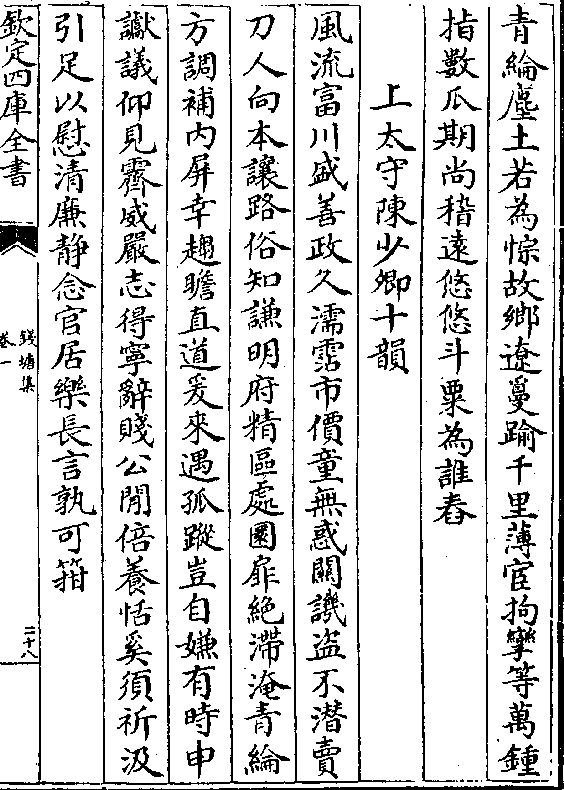 青綸塵土若為悰故鄉遼敻踰千里薄宦拘攣等萬鍾
指數瓜期尚稽遠悠悠斗粟為誰舂
上太守陳少卿十韻
風流富川盛善政久濡霑市價童無惑關譏盗不潜賣
刀人向本讓路俗知謙明府精區處圜扉絶滯淹青綸
方調補内屏幸趨瞻直道爰來遇孤蹤豈自嫌有時申
讞議仰見霽威嚴志得寧辭賤公閒倍養恬奚須祈汲
引足以慰清廉静念官居樂長言孰可箝
欽定四庫全書
錢塘集
卷一
二十八